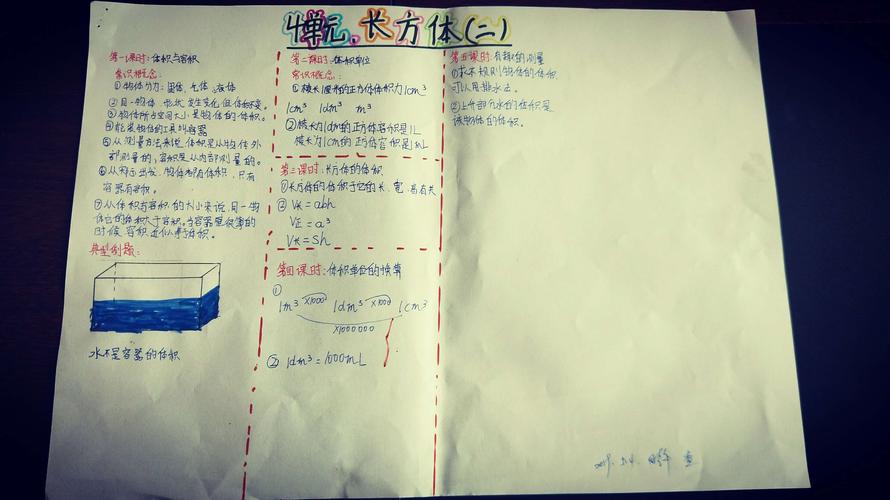 4单元、长方体(二)
第一课时:体积与容积
常识概念:
①物体分为:固体、气体、液体
②同一物体,形状发生变化但体积不变。
③物体所占空间大小是物体的体积。
④能装物体的工具叫容器
⑤从测量方法来说,体积是从物体外
部测量的,容积是从内部测量的。
物体都有体积,只有
容器有容积。
⑦从体积与容积的大小来说,同一物
体它的体积大于容积。当容器壁很薄的
时候容积近似等于体积。
典型例题:
水不是容器的体积
第二课时:体积单位
常识概念:
①棱长1厘米的正方体体积为1cm³
1cm³ 1dm³ m³
②棱长为1dm的正方体容积是1L
棱长为1cm的正方体容积是1mL
第三课时:长方体的体积
①长方体的体积于它的长、宽、高有关
②V长=abh
V正=a³
V长=Sh
第四课时:体积单位的换算
①
1m³ ×1000 1dm³ ×1000 1cm³
×1000000
②1dm³=1000mL
第五课时:有趣的测量
①求不规则物体的体积
可以用排水法。
②上升部分水的体积是
该物体的体积。